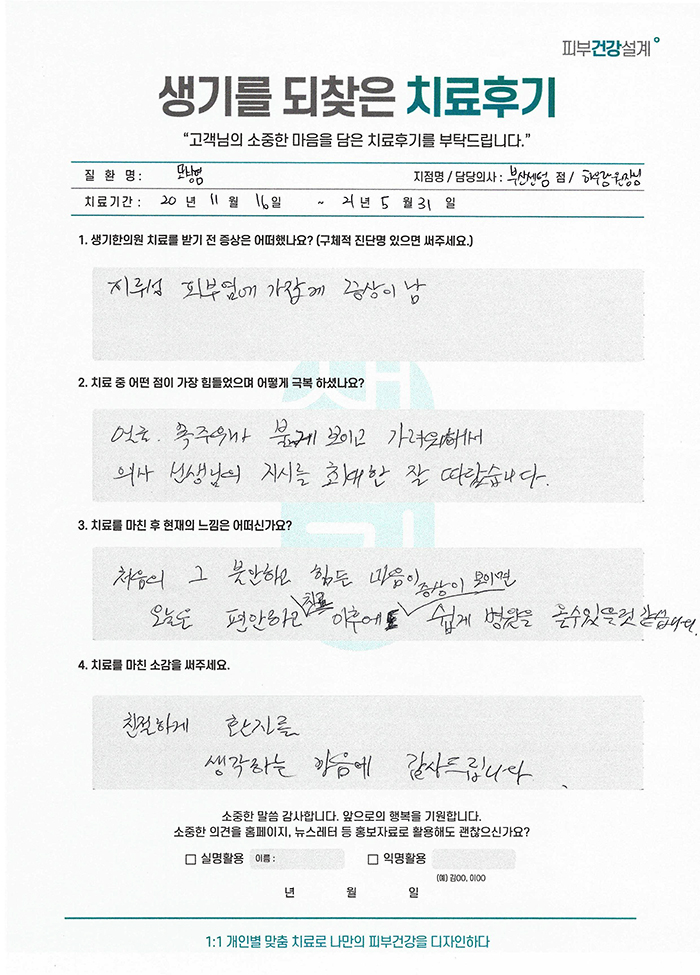 피부건강설계
생기를 되찾은 치료후기
“고객님의 소중한 마음을 담은 치료후기를 부탁드립니다.”
질 환 명 : 모낭염 지점명 / 담당의사 : 부산센텀 점 / 하우람 원장님
치료기간 : 20 년 11 월 16 일 ~ 21 년 5 월 31 일
1. 생기한의원 치료를 받기 전 증상은 어떠했나요? (구체적 진단명 있으면 써주세요.)
지루성 피부염에 가깝게 증상이 남
2. 치료 중 어떤 점이 가장 힘들었으며 어떻게 극복 하셨나요?
보이고
의사 선생님의 지시를 최대한 잘 따랐습니다.
3. 치료를 마친 후 현재의 느낌은 어떠신가요?
처음의 그 불안하고 힘든 마음이 증상이 보이면
오늘은 편안하고 치료 이후에도 쉽게 병원을 올수있을것 같습니다.
4. 치료를 마친 소감을 써주세요.
친절하게 환자를
생각하는 마음에 감사드립니다.
소중한 말씀 감사합니다. 앞으로의 행복을 기원합니다.
소중한 의견을 홈페이지, 뉴스레터 등 홍보자료로 활용해도 괜찮으신가요?
실명활용 이름 : 익명활용
(예) 김OO, 이OO
년 월 일
1:1 개인별 맞춤 치료로 나만의 피부건강을 디자인하다